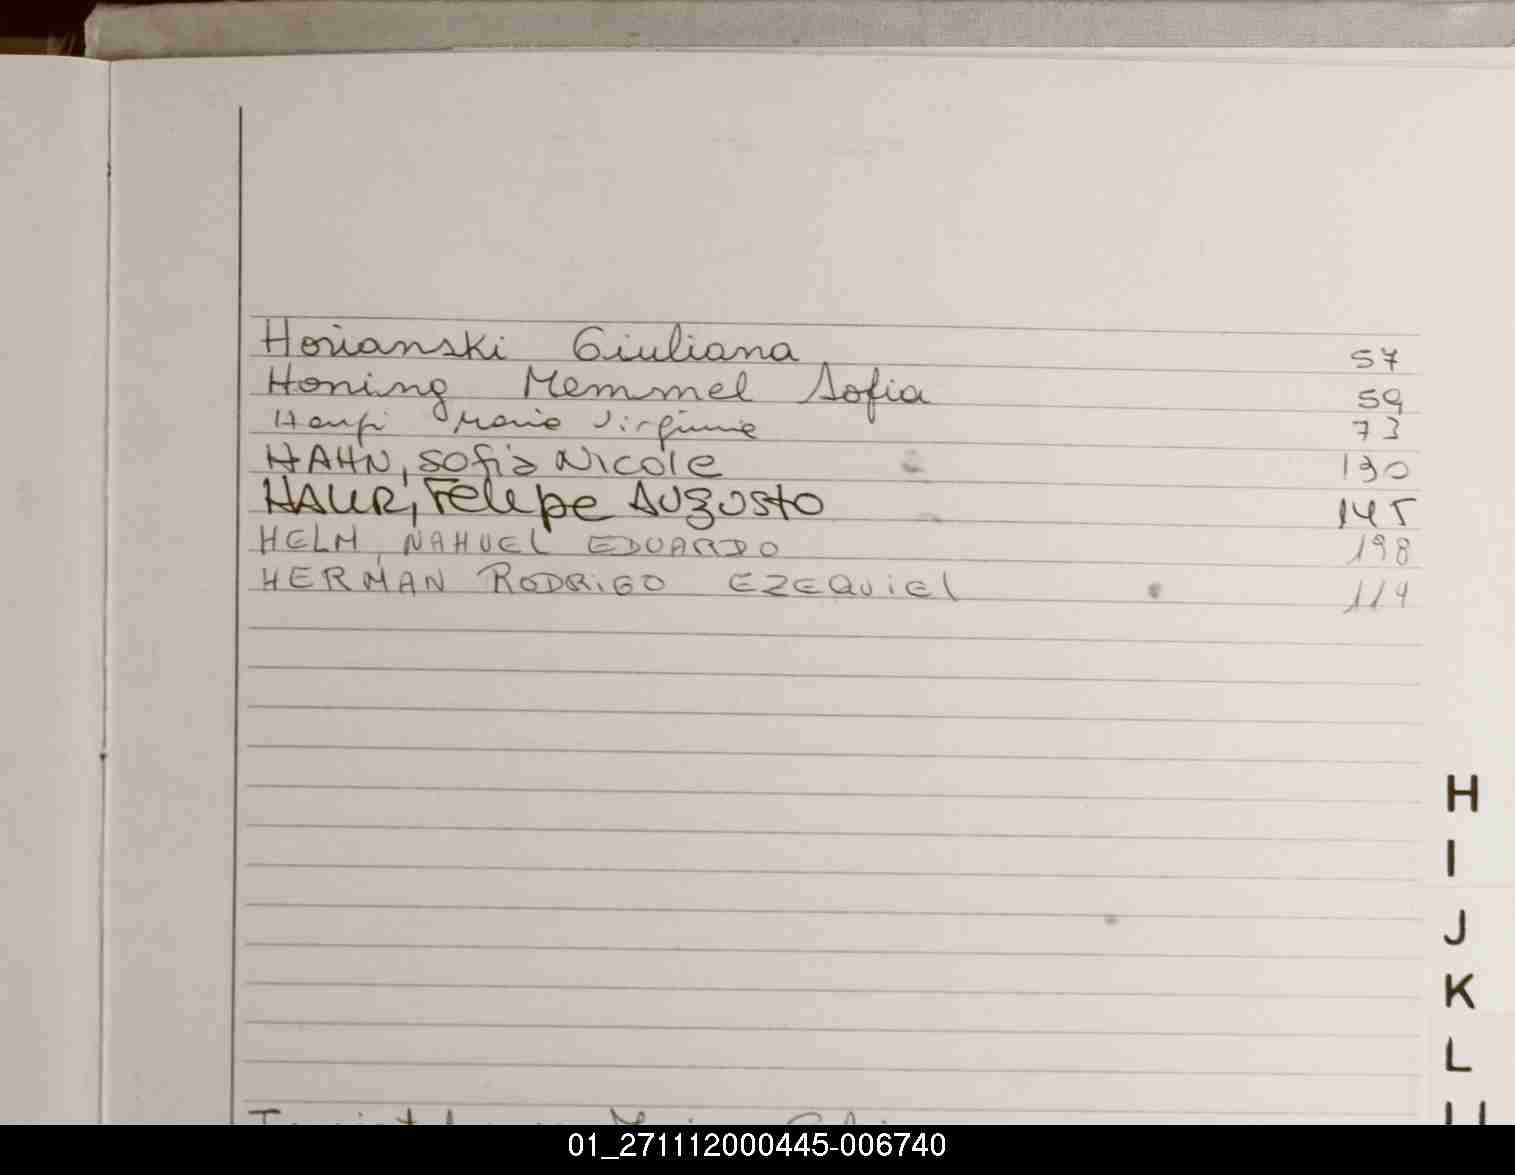 Horianski Giuliana 57
Honing Memmel Sofia 59
Haupi Maria Virginia 73
HAHN, Sofia Nicole 130
HAUR, Felipe Augusto 145
HELM, NAHUEL EDUARDO 198
HERMAN RODRIGO EZEQUIEL 114
H
I
J
K
L
01_271112000445-006740